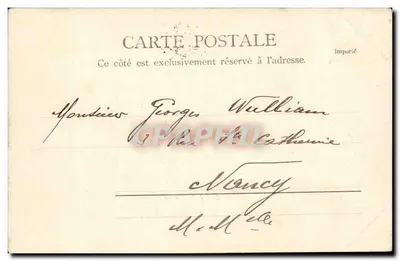 CARTE POSTALE
Importé
Ce côté est exclusivement réservé à l'adresse.
Monsieur Georges Wulliam
Rue Ste Catherine
Nancy
M. Mlle